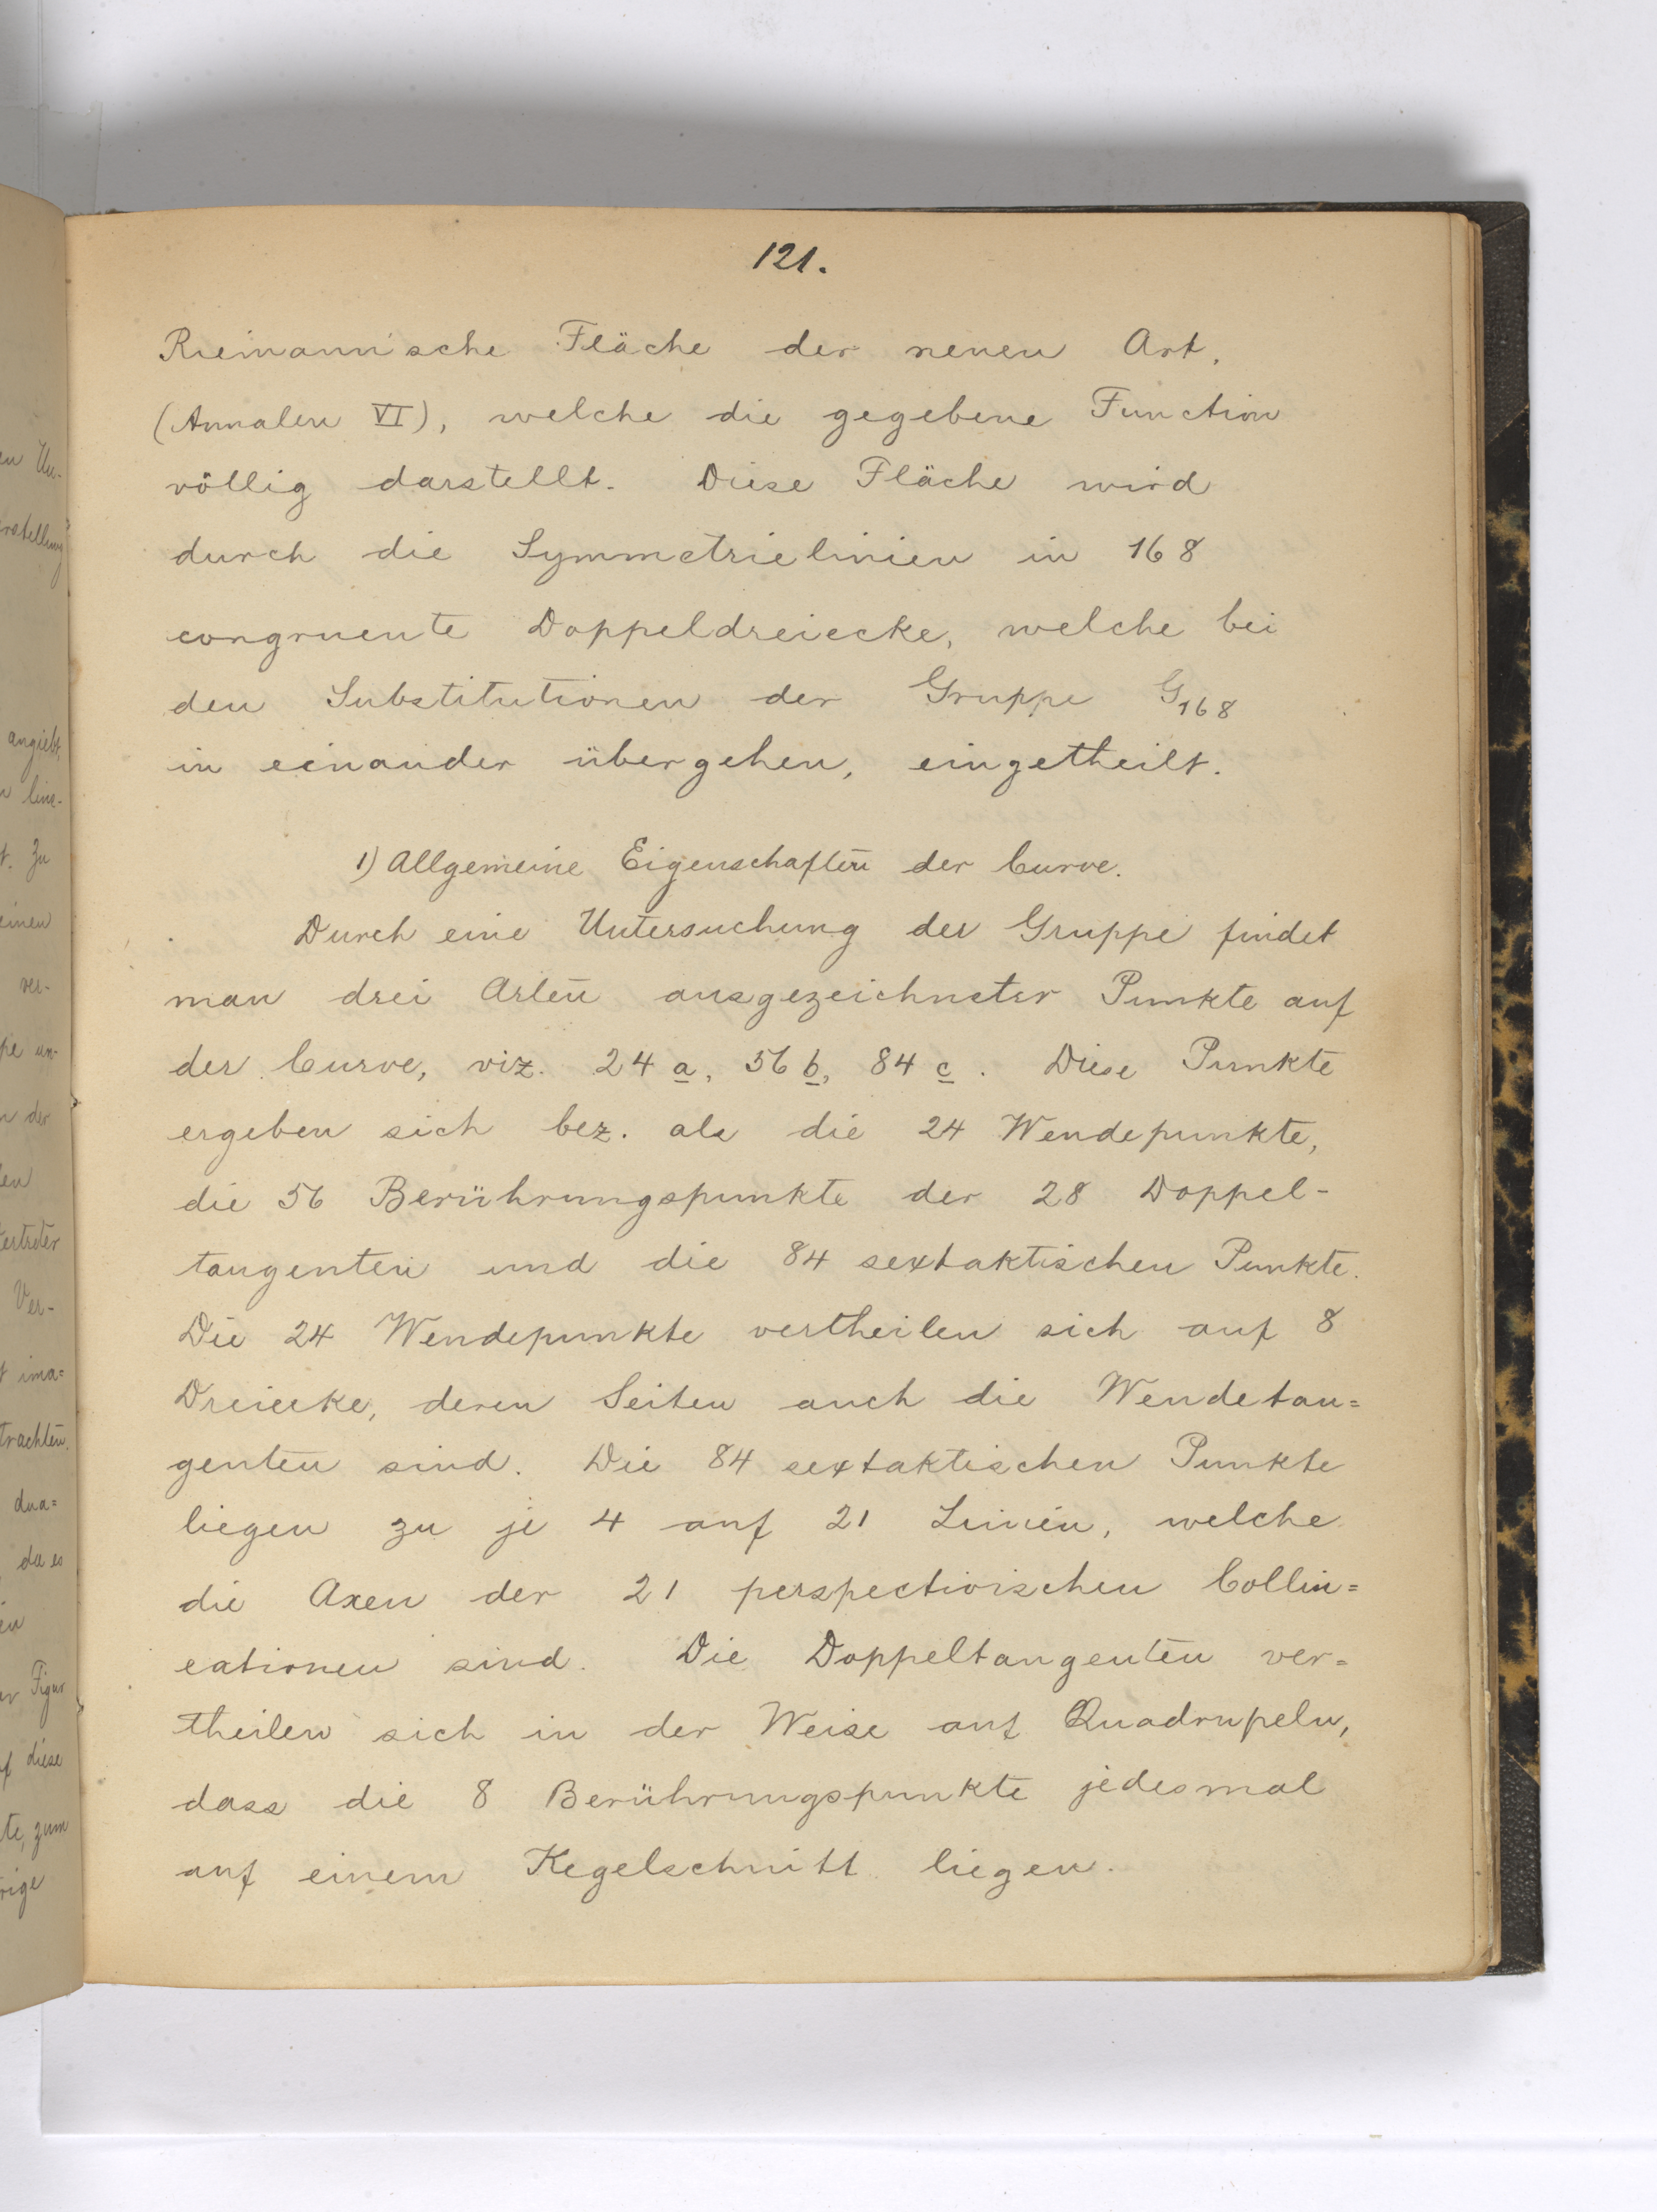 121.
Riemannische Fläche der neuen Art,
(Annalen VI), welche die gegebene Function
völlig darstellt. Diese Fläche wird
durch die Symmetrielinien in 168
congruente Doppeldreiecke, welche bei
den Substitutionen der Gruppe G168
in einander übergehen, eingetheilt.
1) Allgemeine Eigenschaften der Curve.
Durch eine Untersuchung der Gruppe findet
man drei Arten ausgezeichneter Punkte auf
der Curve, viz. 24 a, 56 b, 84 c. Diese Punkte
ergeben sich bez. als die 24 Wendepunkte,
die 56 Berührungspunkte der 28 Doppel-
tangenten und die 84 sextaktischen Punkte.
Die 24 Wendepunkte vertheilen sich auf 8
Dreiecke, deren Seiten auch die Wendetan=
genten sind. Die 84 sextaktischen Punkte
liegen zu je 4 auf 21 Linien, welche
die Axen der 21 perspectivischen Collin=
eationen sind. Die Doppeltangenten ver=
theilen sich in der Weise auf Quadrupeln,
dass die 8 Berührungspunkte jedesmal
auf einem Kegelschnitt liegen.